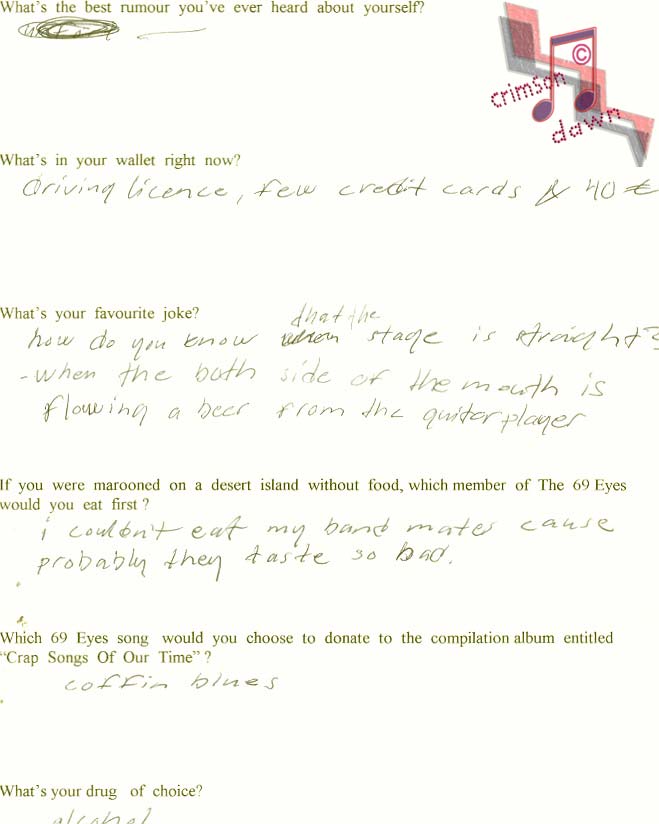 What's the best rumour you've ever heard about yourself?
crimson
©
dawn
What's in your wallet right now?
driving licence, few credit cards & 40 €
What's your favourite joke?
that the
how do you know when stage is straight?
-when the both side of the mouth is
flowing a beer from the guitarplayer
If you were marooned on a desert island without food, which member of The 69 Eyes
would you eat first ?
i couldn't eat my band mates cause
probably they taste so bad.
Which 69 Eyes song would you choose to donate to the compilation album entitled
“Crap Songs Of Our Time” ?
coffin blues
What's your drug of choice?
alcohol